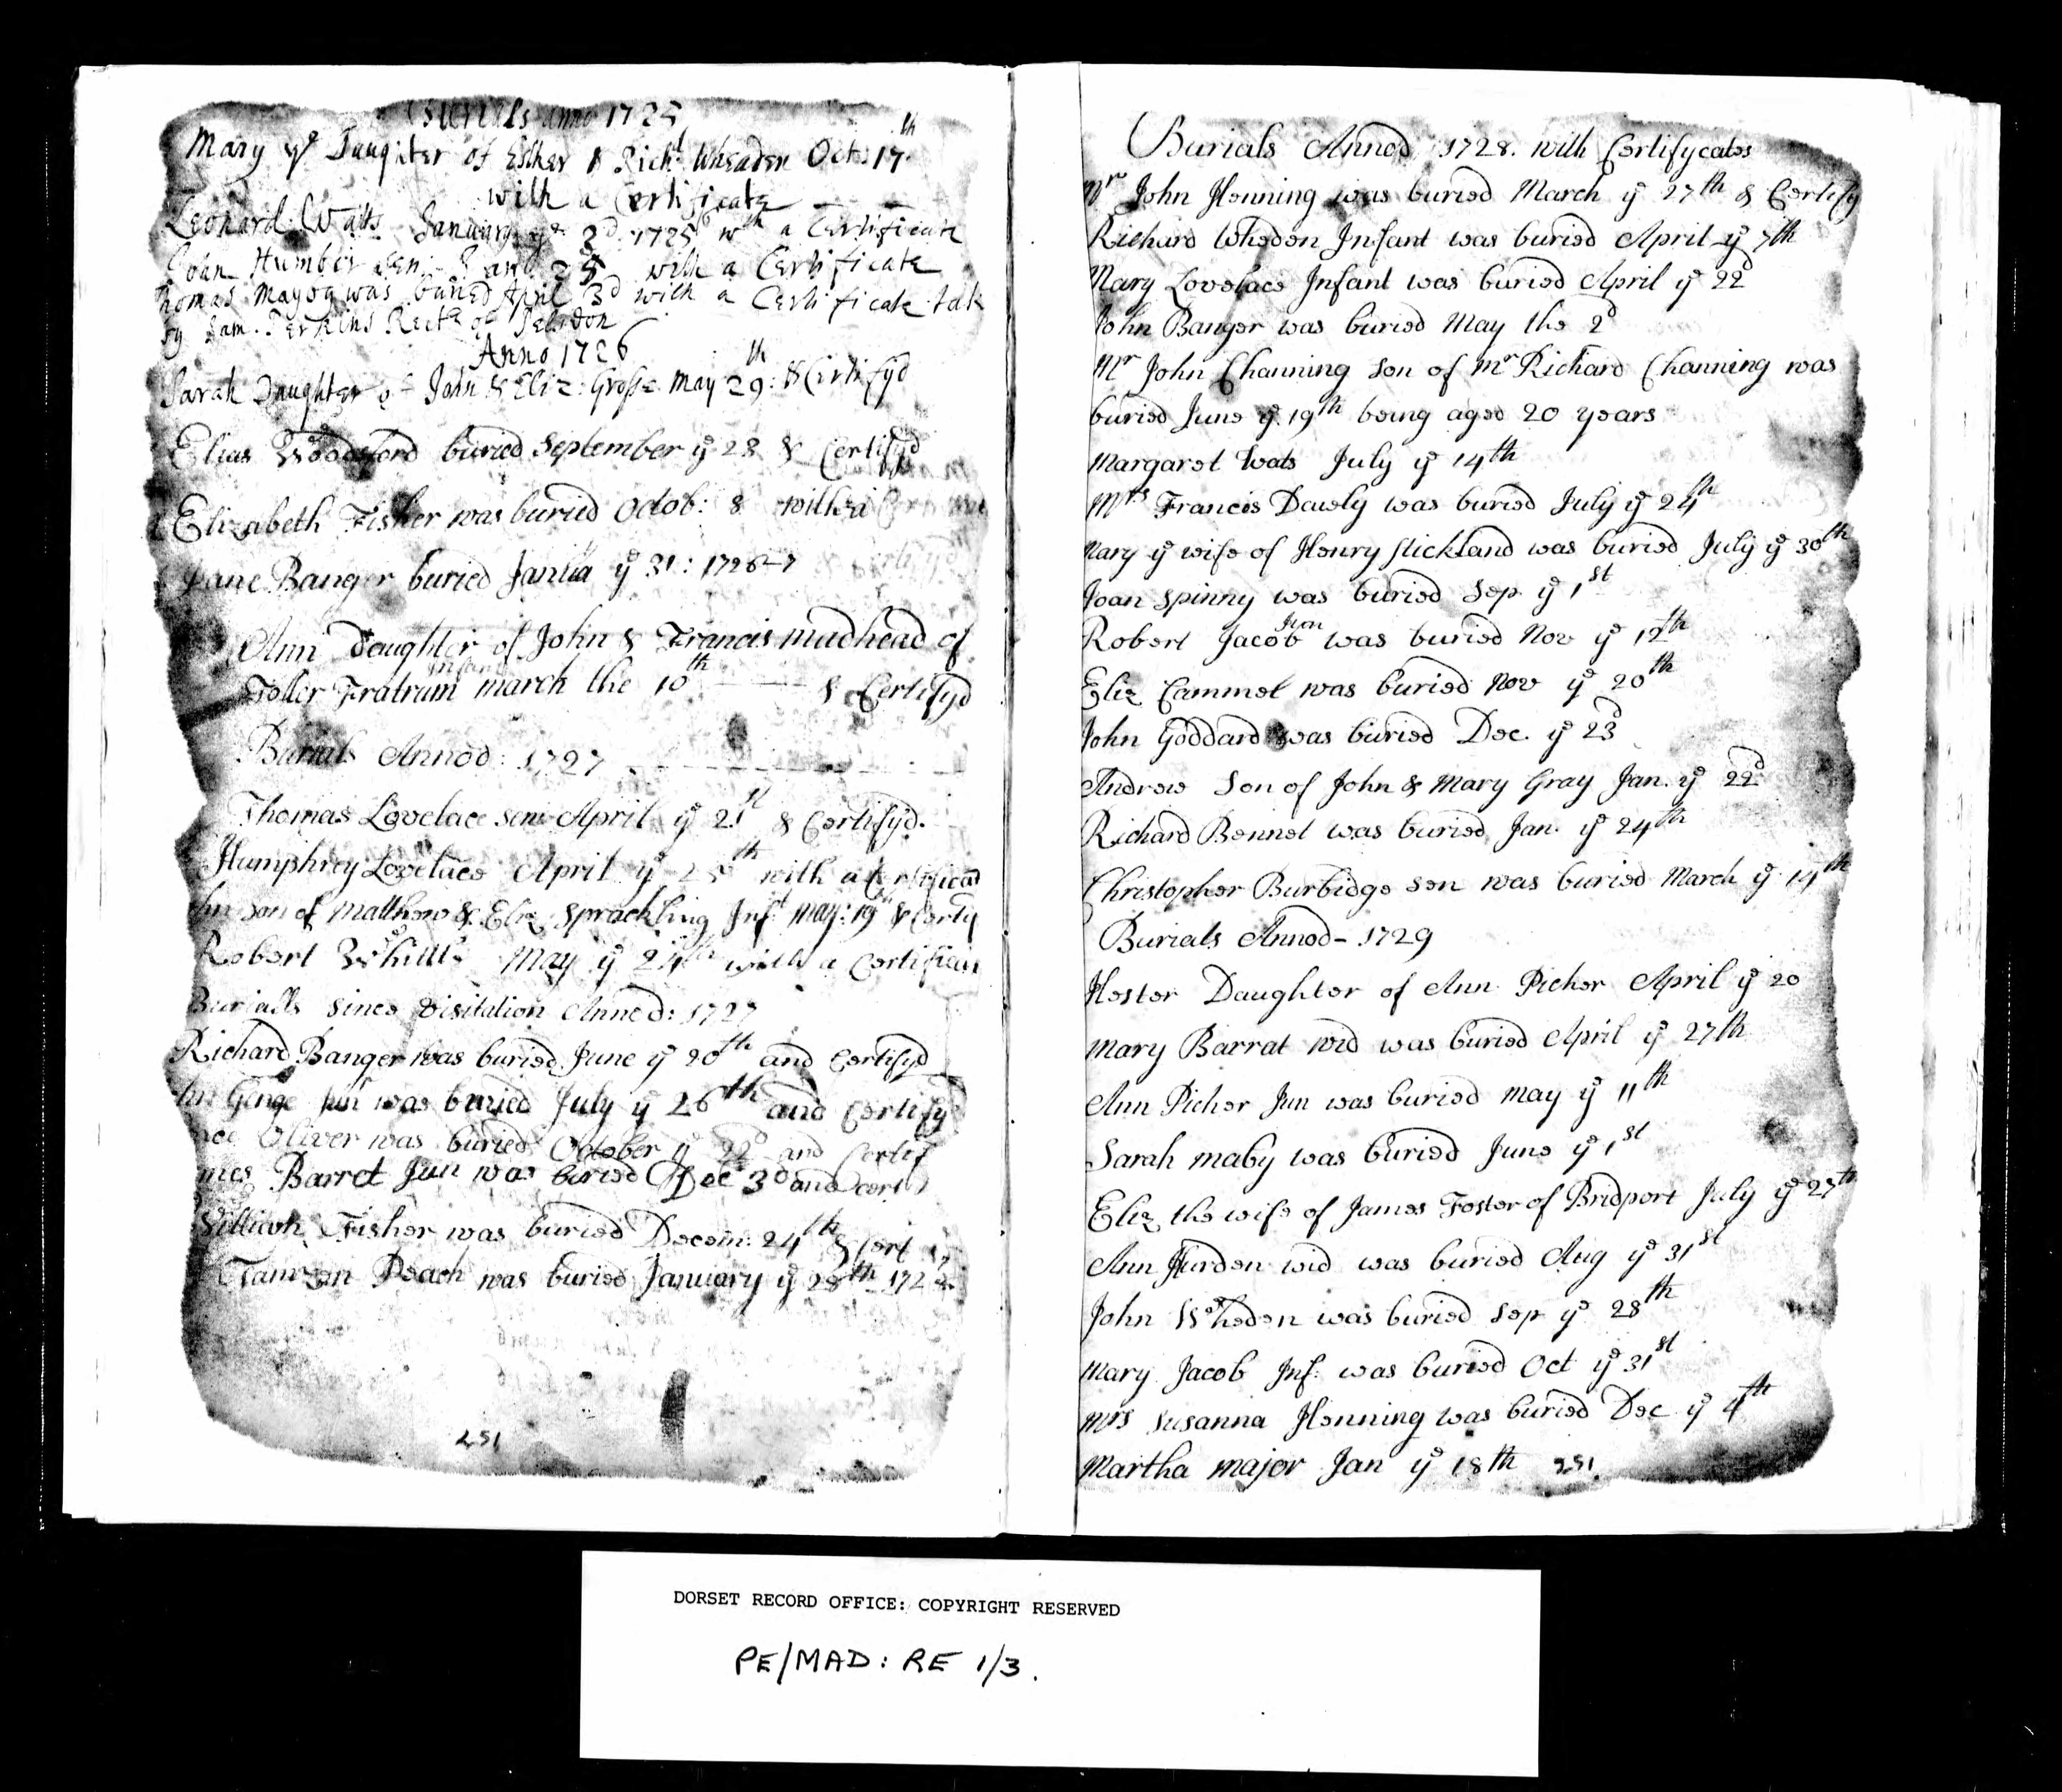 Burials anno 1725
Mary ye Daughter of Esther & Richd Wheaden Octo: 17th
with a Certificate
Leonard Watts January ye 3d 1725/6 wth a Certificate
John Humber sen: with a Certificate
homas was buried April 3d with a Certificate tak
by Sam. Perkins Rectr of
Anno 1726
Sarah Daughter of John & Eliz: Grosse May 29th: & Certifyd
Elias Woodsford buried September ye 28 & Certifyd
Elizabeth Fisher was buried Octob: 8 with a
Jane Banger buried Janua ye 31: 1726-7
Ann Daughter of John & Francis mudhead of
Toller Fratrum Infant march the 10th & Certifyd
Burials Annod: 1727
Thomas Lovelace sen April ye 21st & Certifyd.
Humphrey Lovelace April ye 25th with a Certificat
hn son of Matthew & Eliz Sprackling Inft may: 19th & Certy
Robert Whittle May ye 24th with a Certificat
Burialls since Visitation Annod: 1727
Richard Banger was buried June ye 20th and Certifyd
hn Genge Jun was buried July ye 26th and Certify
Oliver was buried October ye 22d and Certif
mes Barret Jun was buried Dec 3d and cert
William Fisher was buried Decem: 24th & Cert
Tamzen Peach was buried January ye 28th 172
251
Burials Annod 1728. with Certifycates
Mr John Henning was buried March ye 27th & Certify
Richard Wheden Infant was buried April ye 7th
Mary Lovelace Infant was buried April ye 22d
John Banger was buried May the 2d
Mr John Channing Son of Mr Richard Channing was
buried June ye 19th being aged 20 years
Margaret Wats July ye 14th
Mrs Francis Dawly was buried July ye 24th
Mary ye wife of Henry Stickland was buried July ye 30th
Joan Spinny was buried Sep ye 1st
Robert Jacob Jun was buried Nov ye 12th
Eliz Cammel was buried Nov ye 20th
John Goddard was buried Dec. ye 23d
Andrew Son of John & Mary Gray Jan. ye 22d
Richard Bennet was buried Jan. ye 24th
Christopher Burbidge sen was buried March ye 14th
Burials Annod - 1729
Hester Daughter of Ann Picher April ye 20
Mary Barrat wid was buried April ye 27th
Ann Picher Jun was buried may ye 11th
Sarah maby was buried June ye 1st
Eliz the wife of James Foster of Bridport July ye 27th
Ann Hurden wid was buried Aug ye 31st
John Wheden was buried Sep ye 28th
Mary Jacob Inf: was buried Oct ye 31st
Mrs Susanna Henning was buried Dec ye 4th
Martha major Jan ye 18th 251
DORSET RECORD OFFICE: COPYRIGHT RESERVED
PE/MAD: RE 1/3.